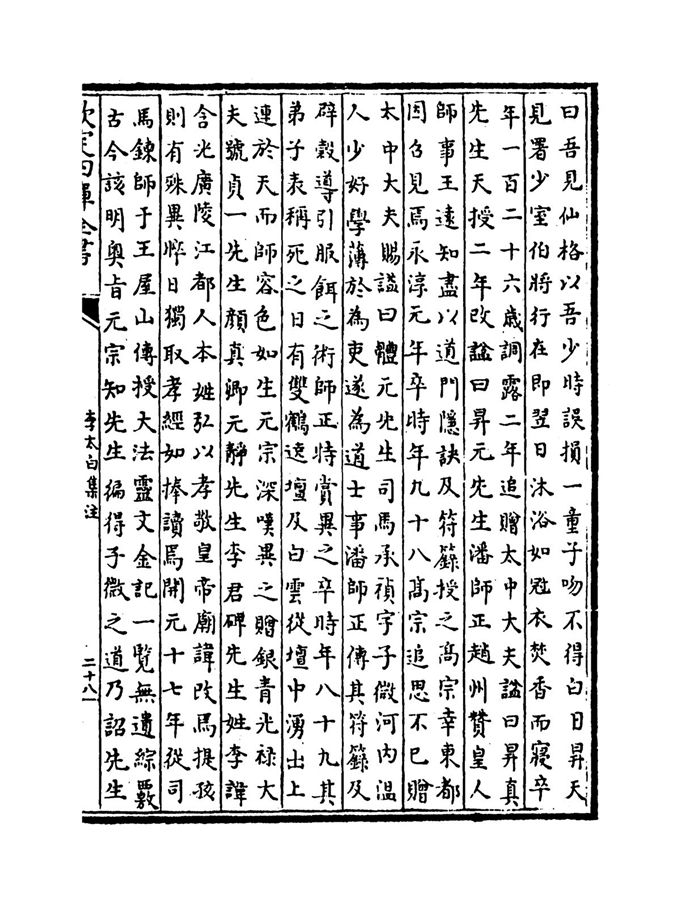 曰吾見仙格以吾少時誤損一童子吻不得白日昇天
見署少室伯將行在即翌日沐浴如冠衣焚香而寢卒
年一百二十六歲調露二年追贈太中大夫諡曰昇真
先生天授二年改諡曰昇元先生潘師正趙州贊皇人
師事王遠知盡以道門隱訣及符籙授之髙宗幸東都
因召見焉永淳元年卒時年九十八髙宗追思不已贈
太中大夫賜諡曰體元先生司馬承禎字子微河内温
人少好學薄於為吏遂為道士事潘師正傳其符籙及
辟穀導引服餌之術師正特賞異之卒時年八十九其
弟子表稱死之日有雙鶴遶壇及白雲從壇中湧出上
連於天而師容色如生元宗深嘆異之贈銀青光祿大
夫號貞一先生顔真卿元靜先生李君碑先生姓李諱
含光廣陵江都人本姓弘以孝敬皇帝廟諱改焉提孩
則有殊異晬日獨取孝經如捧讀焉開元十七年從司
馬鍊師于王屋山傳授大法靈文金記一覽無遺綜覈
古今該明奥旨元宗知先生偏得子微之道乃詔先生
欽定四庫全書
李太白集注
二十八